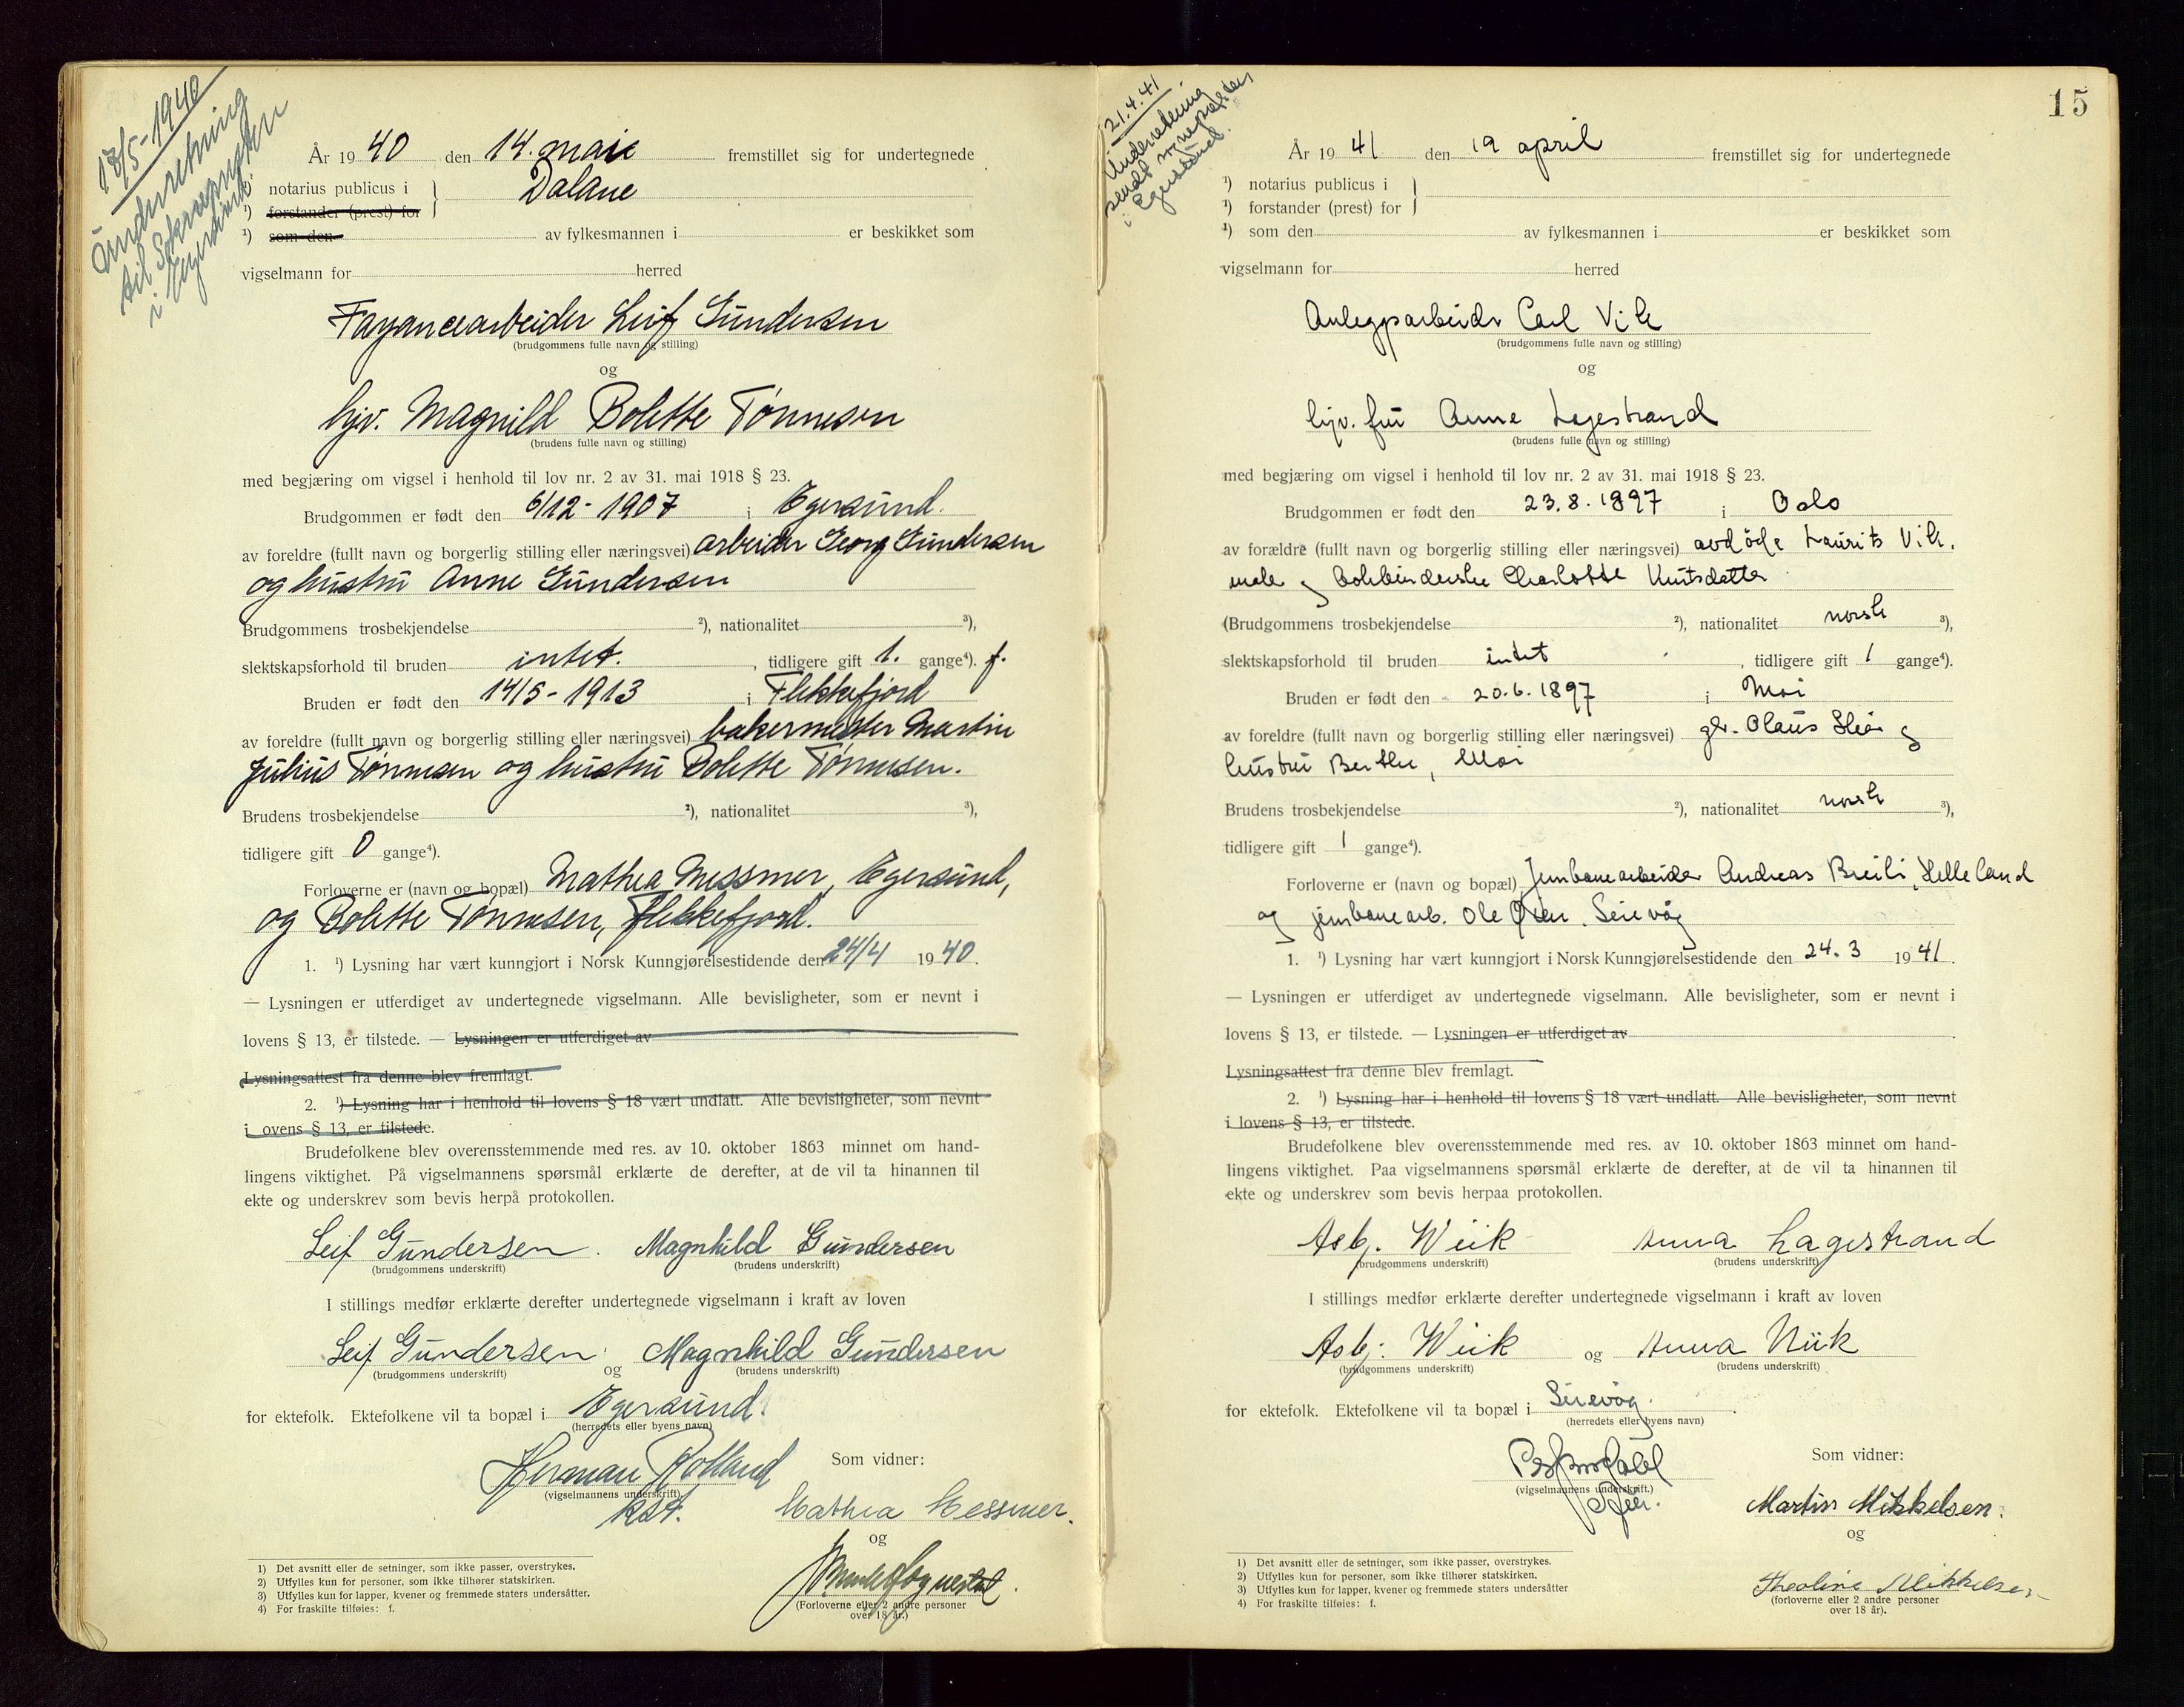 18/5-1940
Underretning
til Soknepresten
i Egersund.
År 1940, den 14. mai fremstillet sig for undertegnede
¹) notarius publicus i Dalane
¹) forstander (prest) for
¹) som den av fylkesmannen i er beskikket som
vigselmann for herred
Fayancearbeider Leif Gundersen
(brudgommens fulle navn og stilling)
og
hjv. Magnild Bolette Tønnesen
(brudens fulle navn og stilling)
med begjæring om vigsel i henhold til lov nr. 2 av 31. mai 1918 § 23.
Brudgommen er født den 6/12-1907 i Egersund.
av foreldre (fullt navn og borgerlig stilling eller næringsvei) arbeider Georg Gundersen
og hustru Anne Gundersen
Brudgommens trosbekjendelse ²), nationalitet ³),
slektskapsforhold til bruden intet. , tidligere gift 1. gange⁴). f.
Bruden er født den 14/5-1913 i Flekkefjord
av foreldre (fullt navn og borgerlig stilling eller næringsvei) bakermester Martin
Julius Tønnesen og hustru Bolette Tønnesen.
Brudens trosbekjendelse ²), nationalitet ³),
tidligere gift 0 gange⁴).
Forloverne er (navn og bopæl) Mathea Messmer, Egersund,
og Bolette Tønnesen, Flekkefjord.
1. ¹) Lysning har vært kunngjort i Norsk Kunngjørelsestidende den 24/4 1940.
— Lysningen er utferdiget av undertegnede vigselmann. Alle bevisligheter, som er nevnt i
lovens § 13, er tilstede. — Lysningen er utferdiget av
Lysningsattest fra denne blev fremlagt.
2. ¹) Lysning har i henhold til lovens § 18 vært undlatt. Alle bevisligheter, som nevnt
i lovens § 13, er tilstede.
Brudefolkene blev overensstemmende med res. av 10. oktober 1863 minnet om hand-
lingens viktighet. På vigselmannens spørsmål erklærte de derefter, at de vil ta hinannen til
ekte og underskrev som bevis herpå protokollen.
Leif Gundersen. Magnhild Gundersen
(brudgommens underskrift) (brudens underskrift)
I stillings medfør erklærte derefter undertegnede vigselmann i kraft av loven
Leif Gundersen og Magnhild Gundersen
(brudgommens underskrift) (brudens underskrift)
for ektefolk. Ektefolkene vil ta bopæl i Egersund.
(herredets eller byens navn)
Herman Rolland
(vigselmannens underskrift)
kst.
Som vidner:
Mathea Messmer.
og
(Forloverne eller 2 andre personer
over 18 år.)
1) Det avsnitt eller de setninger, som ikke passer, overstrykes.
2) Utfylles kun for personer, som ikke tilhører statskirken.
3) Utfylles kun for lapper, kvener og fremmede staters undersåtter.
4) For fraskilte tilføies: f.
15
21.4.41
Underretning
sendt sognepresten
i Egersund.
År 1941 den 19 april fremstillet sig for undertegnede
¹) notarius publicus i
¹) forstander (prest) for
¹) som den av fylkesmannen i er beskikket som
vigselmann for herred
Anleggsarbeider Carl Vik
(brudgommens fulle navn og stilling)
og
hjv. fru Anne Legestrand
(brudens fulle navn og stilling)
med begjæring om vigsel i henhold til lov nr. 2 av 31. mai 1918 § 23.
Brudgommen er født den 23.8.1897 i Oslo
av forældre (fullt navn og borgerlig stilling eller næringsvei) avdøde Laurits Vik.
maler og bokbinderske Charlotte Knutsdatter
(Brudgommens trosbekjendelse ²), nationalitet norsk ³),
slektskapsforhold til bruden intet , tidligere gift 1 gange⁴).
Bruden er født den 20.6.1897 i Moi
av foreldre (fullt navn og borgerlig stilling eller næringsvei) gbr. Olaus og
hustru Berthe, Moi
Brudens trosbekjendelse ²), nationalitet norsk ³),
tidligere gift 1 gange⁴).
Forloverne er (navn og bopæl) Jernbanearbeider Andreas Breili, Helleland
og jernbanearb. Ole Sirevåg
1. ¹) Lysning har vært kunngjort i Norsk Kunngjørelsestidende den 24.3 1941.
— Lysningen er utferdiget av undertegnede vigselmann. Alle bevisligheter, som er nevnt i
lovens § 13, er tilstede. — Lysningen er utferdiget av
Lysningsattest fra denne blev fremlagt.
2. ¹) Lysning har i henhold til lovens § 18 vært undlatt. Alle bevisligheter, som nevnt
i lovens § 13, er tilstede.
Brudefolkene blev overensstemmende med res. av 10. oktober 1863 minnet om hand-
lingens viktighet. Paa vigselmannens spørsmål erklærte de derefter, at de vil ta hinannen til
ekte og underskrev som bevis herpaa protokollen.
Asbj. Wiik Anna Lagestrand
(brudgommens underskrift) (brudens underskrift)
I stillings medfør erklærte derefter undertegnede vigselmann i kraft av loven
Asbj. Wiik og Anna Wiik
(brudgommens underskrift) (brudens underskrift)
for ektefolk. Ektefolkene vil ta bopæl i Sirevåg.
(herredets eller byens navn)
(vigselmannens underskrift.)
Som vidner:
Martin Mikkelsen.
og
Theoline Mikkelsen
(forloverne eller 2 andre personer
over 18 år).
1) Det avsnitt eller de setninger, som ikke passer, overstrykes.
2) Utfylles kun for personer, som ikke tilhører statskirken.
3) Utfylles kun for lapper, kvener og fremmede staters undersåtter
4) For fraskilte tilføies: f.